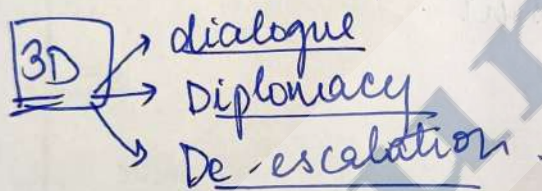 3D
dialogue
Diplomacy
De-escalation.